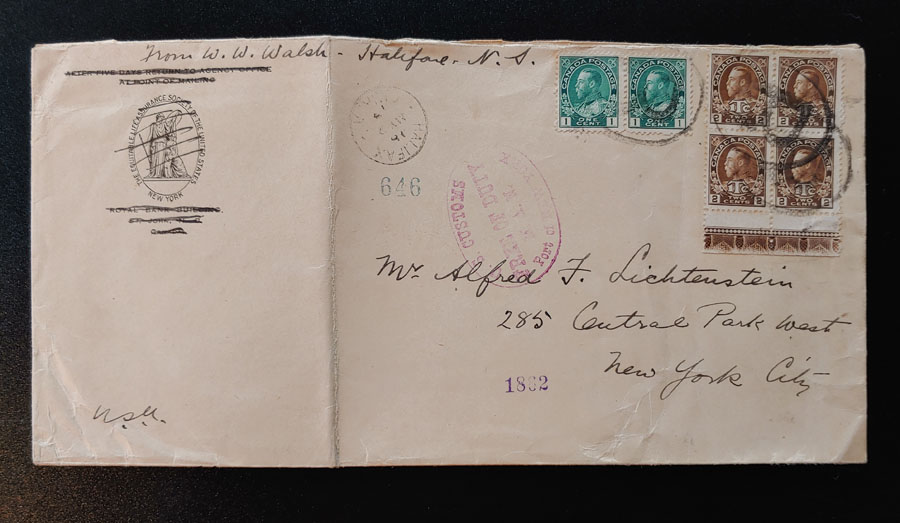 From W. W. Walsh - Halifax. N. S.
AFTER FIVE DAYS RETURN TO AGENCY OFFICE
AT POINT OF MAILING
THE EQUITABLE LIFE ASSURANCE SOCIETY OF THE UNITED STATES
NEW YORK
ROYAL BANK BUILDING
HALIFAX
646
CANADA POSTAGE
1 ONE CENT 1
CANADA POSTAGE
1 CENT 1
CANADA POSTAGE
1Tc
2 CENTS 2
CANADA POSTAGE
2 2
CANADA POSTAGE
1Tc
2 TWO CENTS 2
CANADA POSTAGE
1Tc
2 TWO CENTS 2
CUSTOMS
FREE OF DUTY
Port of
Mr Alfred F. Lichtenstein
285 Central Park West
New York City
1892
U.S.A.